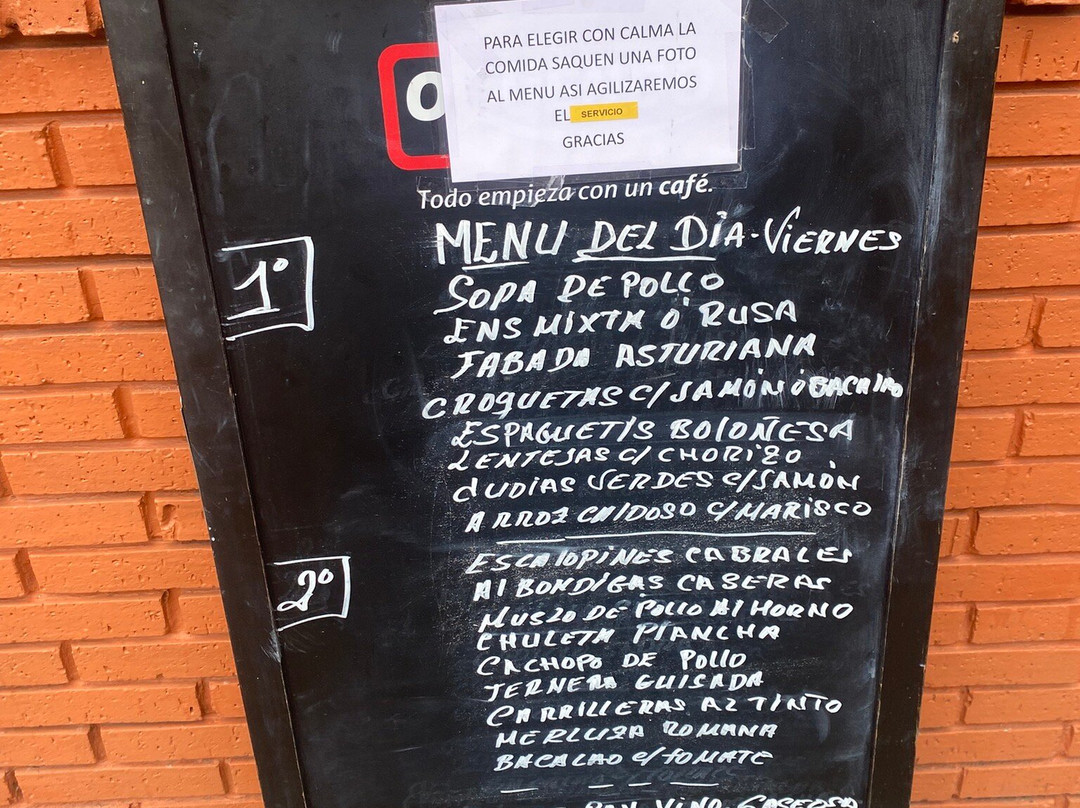 PARA ELEGIR CON CALMA LA
COMIDA SAQUEN UNA FOTO
AL MENU ASI AGILIZAREMOS
EL SERVICIO
GRACIAS
O
Todo empieza con un café.
MENU DEL DIA - VIERNES
1º
SOPA DE POLLO
ENS MIXTA Ó RUSA
FABADA ASTURIANA
CROQUETAS C/JAMÓN ó BACALAO
ESPAGUETIS BOLOÑESA
LENTEJAS C/CHORIZO
JUDIAS VERDES C/JAMÓN
ARROZ CALDOSO C/MARISCO
2º
ESCALOPINES CABRALES
ALBONDIGAS CASERAS
MUSLO DE POLLO AL HORNO
CHULETA PLANCHA
CACHOPO DE POLLO
TERNERA GUISADA
CARRILLERAS AL TINTO
MERLUZA ROMANA
BACALAO C/TOMATE
PAN VINO GASEOSA